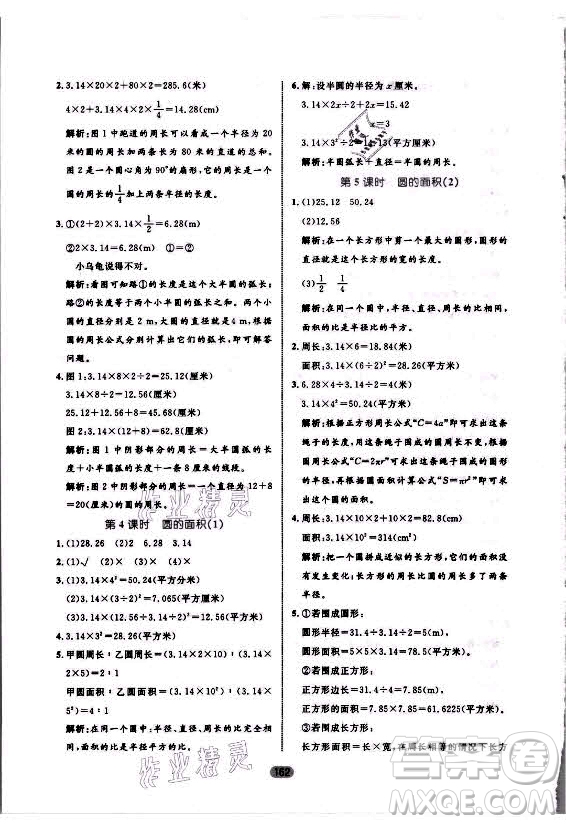 2. 3.14×20×2+80×2=285.6(米)
4×2+3.14×4×2×1/4=14.28(cm)
解析:图1中跑道的周长可以看成一个半径为20
米的圆的周长加两条长为80米的直道的总长。
图2是一个圆心角为90°的扇形,它的周长是圆的
周长的1/4加上两条半径的长度。
3. ①(2+2)×3.14×1/2=6.28(m)
②2×3.14=6.28(m) ①=②
小乌龟说得不对。
解析:图中路①的长度是这个大半圆的弧长;
路②的长度是两个小半圆的弧长之和。两个小
圆的直径分别是2 m,大圆的直径是4 m,根据
圆的周长公式分别计算出它们的弧长即可解答
问题。
4. 图1:3.14×8×2÷2=25.12(厘米)
3.14×8÷2=12.56(厘米)
25.12+12.56+8=45.68(厘米)
图2:3.14×(12+8)=62.8(厘米)
解析:图1中阴影部分的周长=大半圆弧的长
度+小半圆弧的长度+一条8厘米的线段。
图2中阴影部分的周长等于一个直径为12+8=
20(厘米)的圆的周长。
第4课时 圆的面积(1)
1. (1)28.26 (2)2 6.28 3.14
2. (1)√ (2)× (3)× (4)×
3. (1)3.14×2²=12.56(平方分米)
(2)3.14×(3÷2)²=7.065(平方厘米)
(3)3.14×(4÷2)²=12.56(平方米)
4. 3.14×3²=28.26(平方米)
5. 甲圆周长:乙圆周长=(3.14×2×2):(3.14×
2)=2:1
甲圆面积:乙圆面积=(3.14×2²):(3.14×
1²)=4:1
解析:在同一个圆中:半径、直径、周长的比完全
相等,面积的比是半径的平方的比。
6. 解:设半圆的半径为x厘米。
3.14×2x÷2+2x=15.42
x=3
3.14×3²÷2=14.13(平方厘米)
解析:半圆弧长+直径=半圆的周长。
第5课时 圆的面积(2)
1. (1)25.12 50.24
(2)12.56
解析:在一个长方形中剪一个最大的圆形,圆形
的直径等于长方形的宽的长度。
(3)1/2 1/4
解析:在同一个圆中,半径、直径、周长的比相等,
面积的比是半径比的平方。
2. 周长:3.14×6=18.84(米)
面积:3.14×(6÷2)²=28.26(平方米)
3. 6.28×4÷3.14÷2=4(米)
3.14×4²=50.24(平方米)
解析:根据正方形周长公式“C=4a”求出这条
绳子的长度,根据这条绳子围成的圆形,根据
圆的周长公式“C=2πr”可求出这条绳子围成
的圆的半径,再根据圆的面积公式“S=πr²”求
出这条绳子围成的圆的面积。
4. 周长:3.14×10×2+10×2=82.8(厘米)
面积:3.14×10²=314(平方厘米)
解析:把一个圆拼成近似的长方形,这个长方形
与圆的面积相等,周长比圆的周长多了两条
半径。
5. ①若围成圆形:
圆形半径=31.4÷3.14÷2=5(米)
圆形面积=5×5×3.14=78.5(平方米)
②若围成正方形:
正方形边长=31.4÷4=7.85(米)
正方形的面积=7.85×7.85=61.6225(平方米)
③若围成长方形:
长方形面积=长×宽,在周长相等的情况下长方
162
作业精灵
作业精灵
答案圈
MXQE.COM